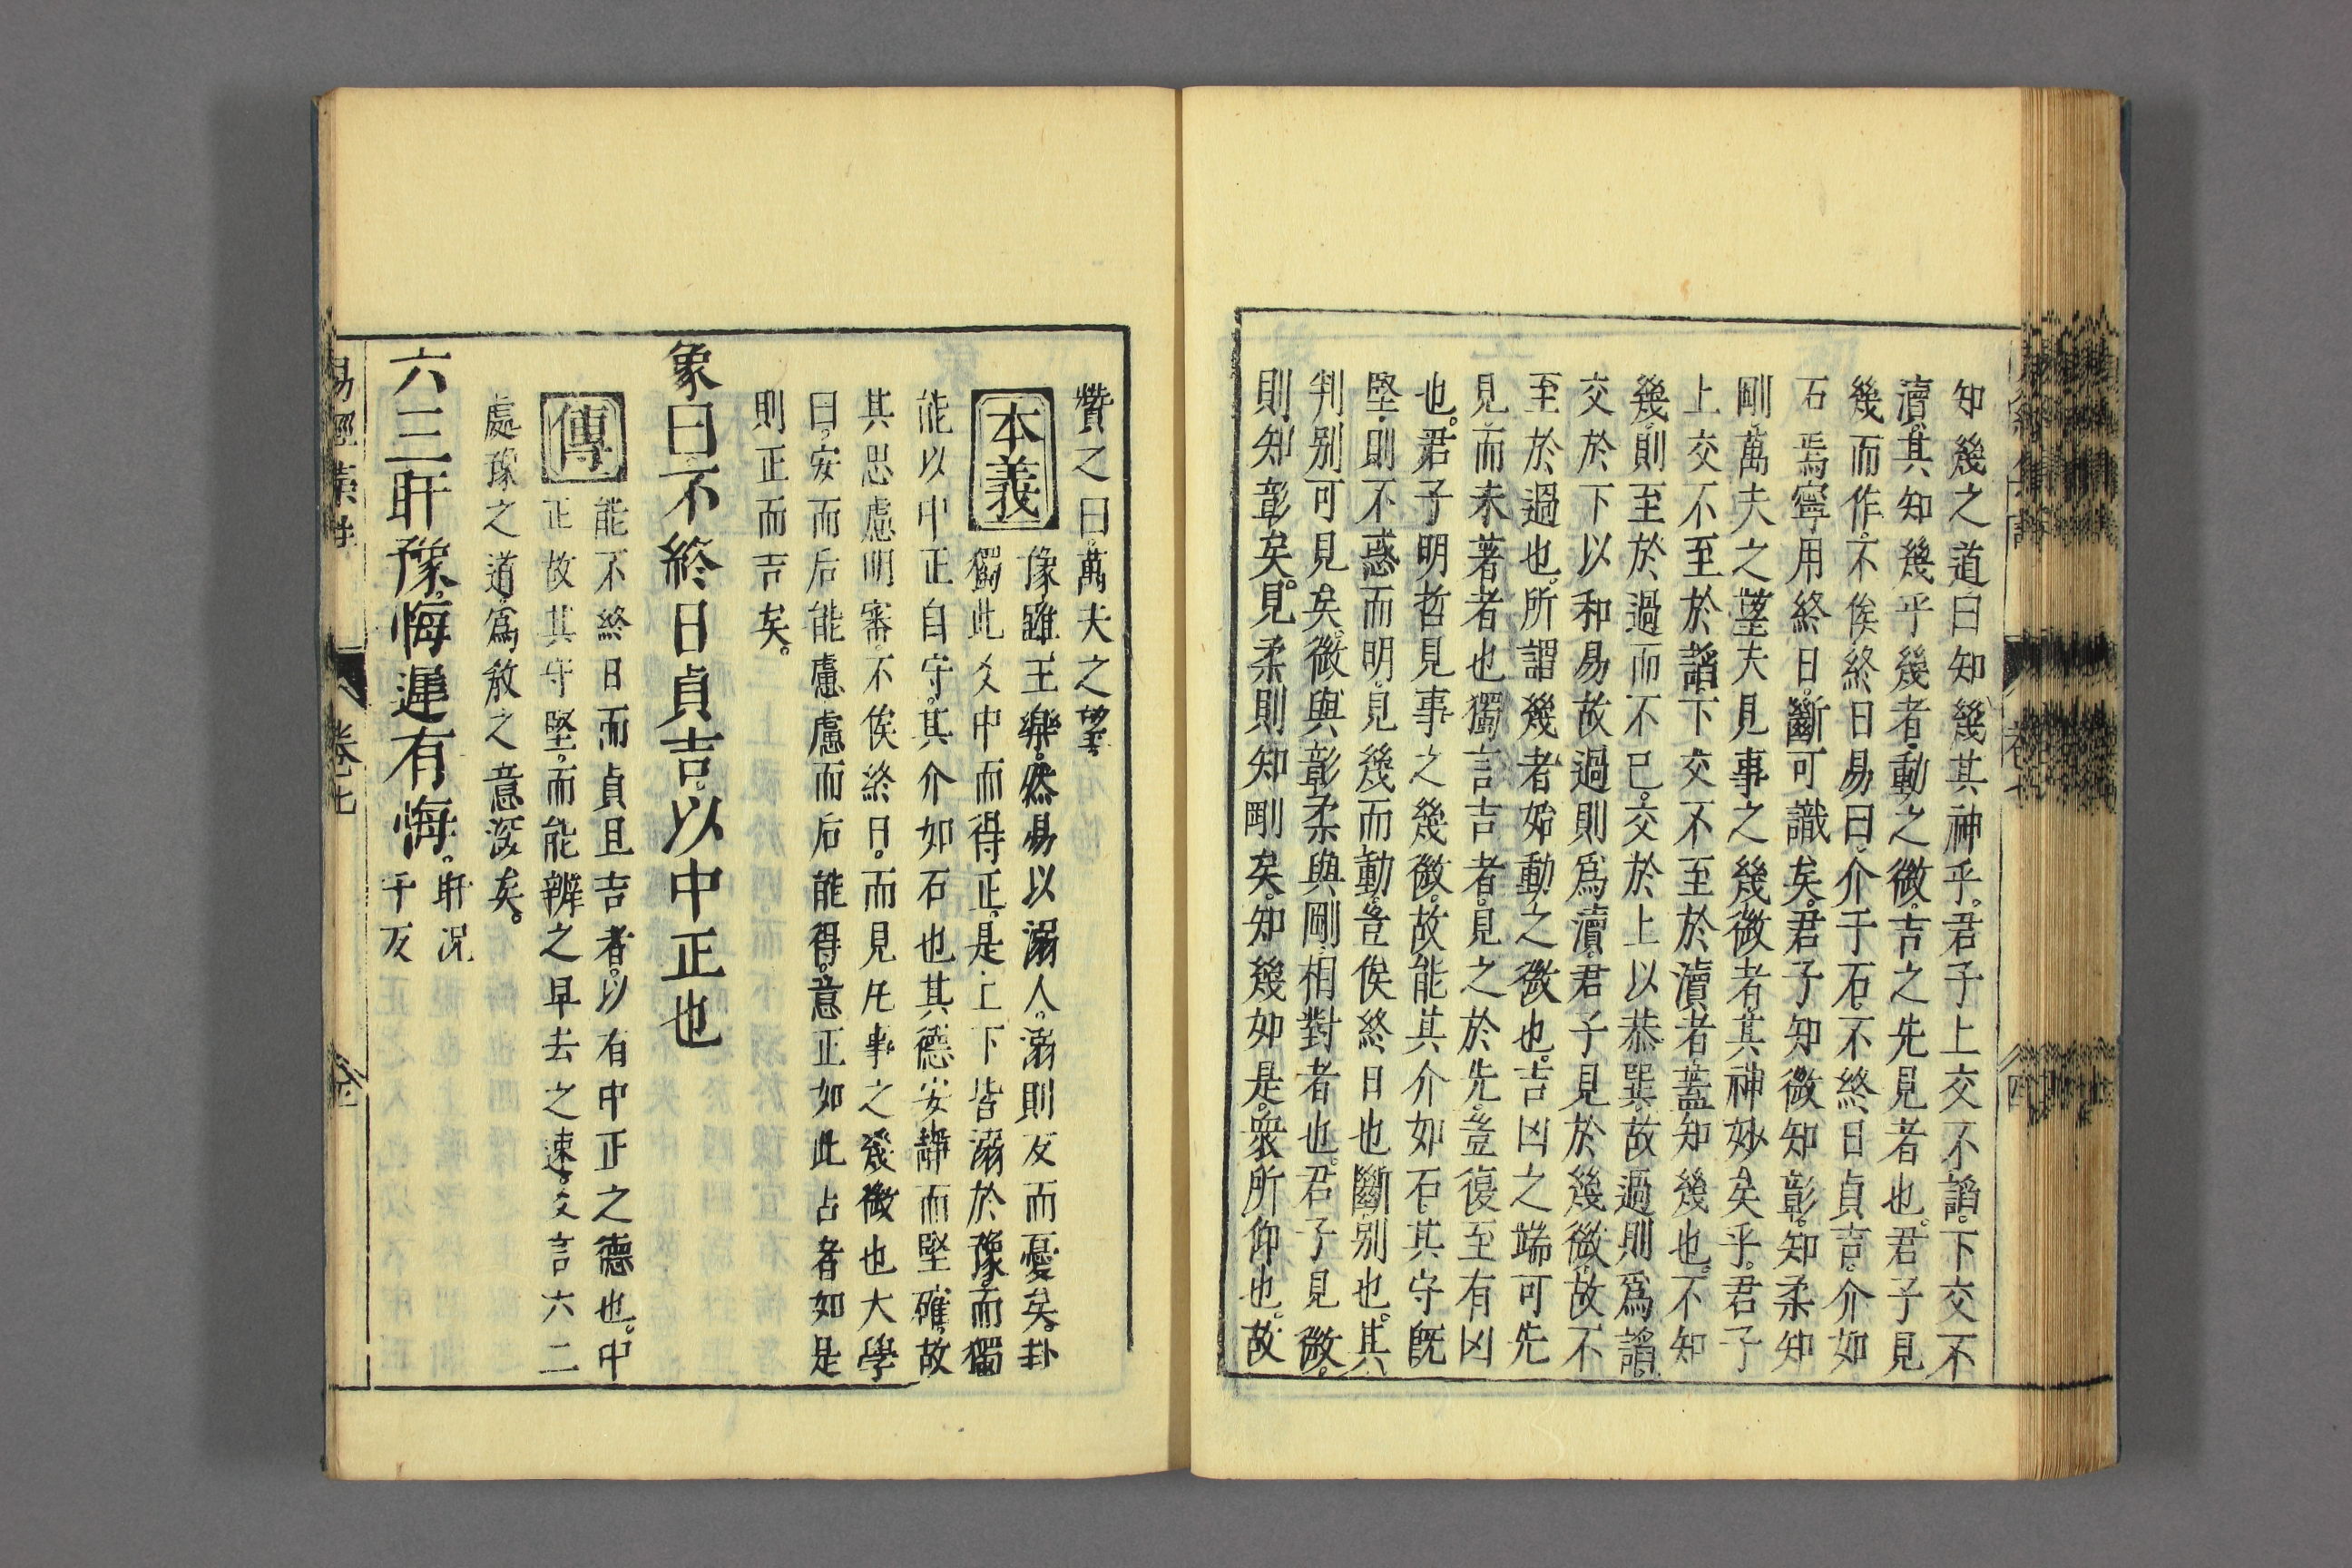 知幾之道曰知幾其神乎。君子上交不謟。下交不
瀆。其知幾乎幾者。動之微。吉之先見者也。君子見
幾而作。不俟終日易曰。介于石。不終日貞吉。介如
石焉寧用終日。斷可識矣。君子知微知彰。知柔知
剛。萬夫之望夫見事之幾微者。其神妙矣乎。君子
上交不至於謟。下交不至於瀆者蓋知幾也。不知
幾。則至於過而不已。交於上以恭巽。故過則爲謟。
交於下以和易。故過則爲瀆。君子見於幾微。故不
至於過也。所謂幾者。始動之微也。吉凶之端可先
見。而未著者也獨言吉者。見之於先。豈復至有凶
也。君子明哲見事之幾微。故能其介如石。其守旣
堅。則不惑而明。見幾而動。豈俟終日也。斷別也。其
判別可見矣。微與彰柔與剛。相對者也。君子見微。
則知彰矣。見柔則知剛矣。知幾如是。衆所仰也。故
贊之曰。萬夫之望。
本義 豫雖主樂。然易以溺人。溺則反而憂矣。卦
獨此爻中而得正。是上下皆溺於豫。而獨
能以中正自守。其介如石也其德安靜而堅確。故
其思慮明審。不俟終日。而見凡事之幾微也大學
曰。安而后能慮慮而后能得。意正如此占者如是
則正而吉矣。
象曰不終日貞吉。以中正也
傳 能不終日而貞且吉者。以有中正之德也。中
正故其守堅。而能辨之早去之速。爻言六二
處豫之道。爲敎之意深矣。
六三盱豫。悔遲有悔。盱况
于反
易經集註 卷七
卷七 四